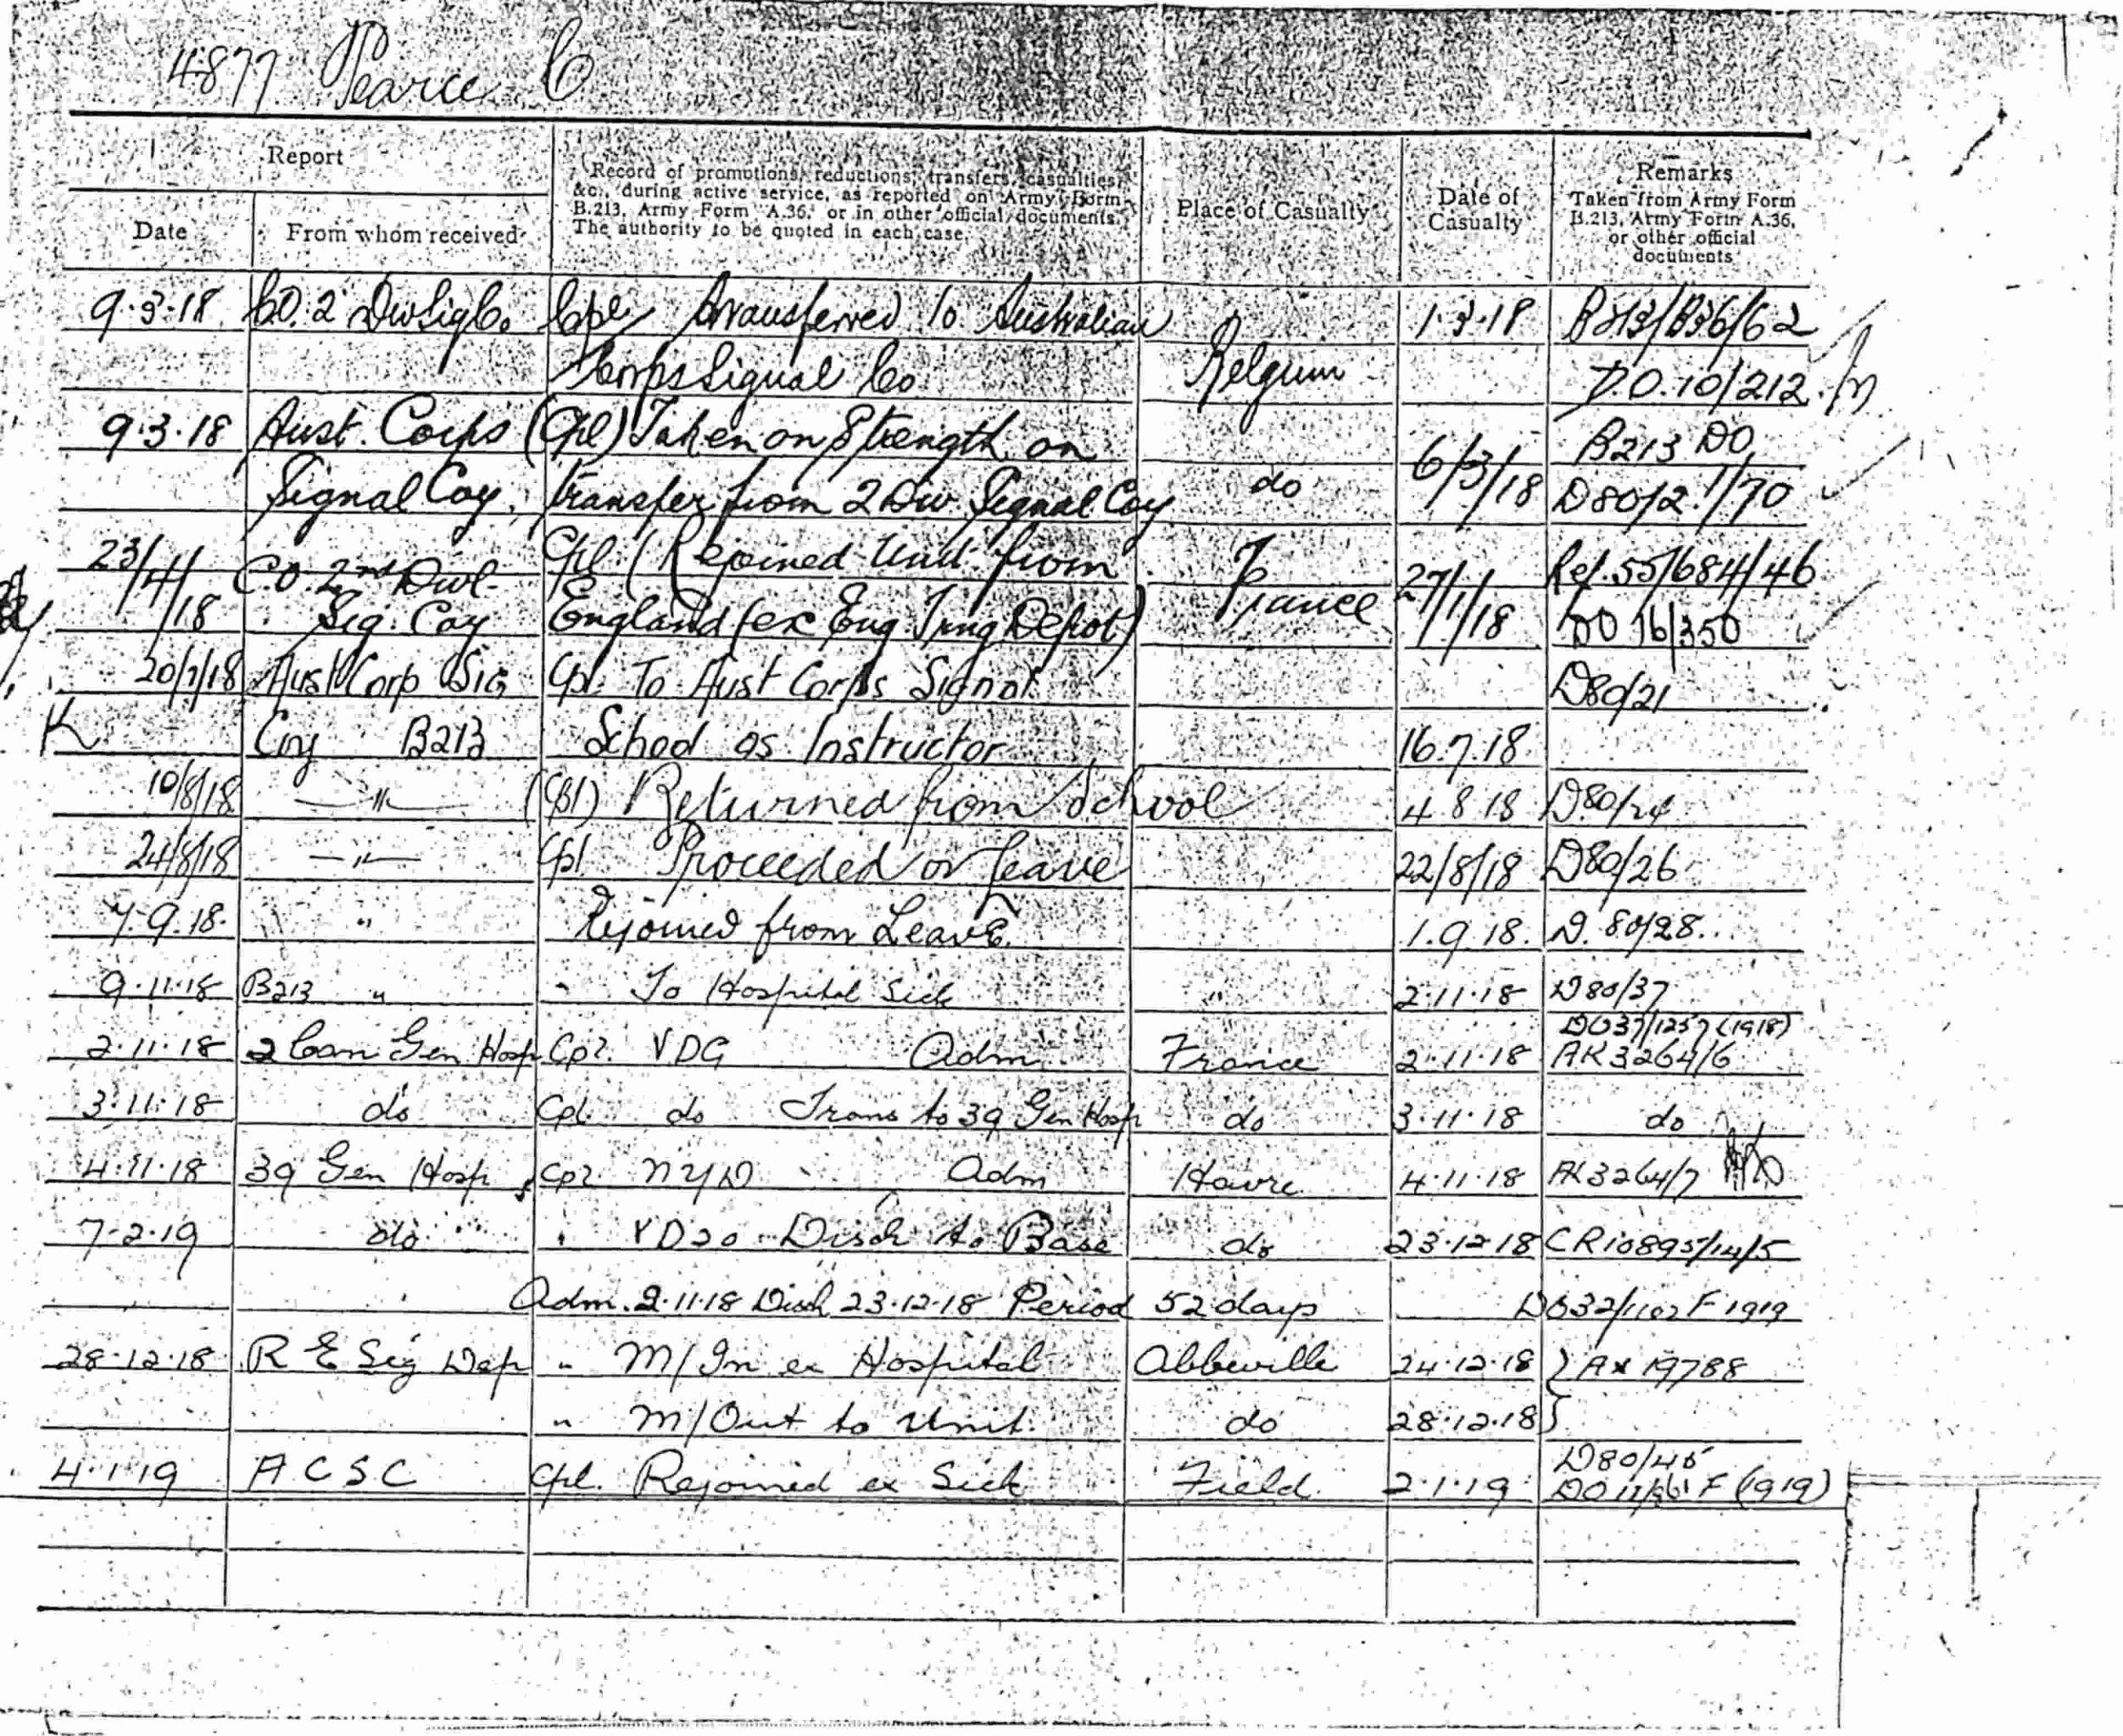 4877 Pearce C
Report
Record of promotions, reductions, transfers, casualties,
&c., during active service, as reported on Army Form
B.213, Army Form A.36, or in other official documents.
The authority to be quoted in each case.
Place of Casualty
Date of
Casualty
Remarks
Taken from Army Form
B.213, Army Form A.36,
or other official
documents
Date
From whom received
9.3.18 CO. 2 Div Sig Co. Cpl Transferred to Australian 1.3.18 B213/B36/62
Corps Signal Co Belgium D.O. 10/212.
9.3.18 Aust. Corps (Cpl) Taken on Strength on 6/3/18 B213 DO
Signal Coy, transfer from 2 Div Signal Coy do D80/2. 1/70
23/4/18 C.O. 2nd Divl Cpl (Rejoined Unit from France 27/1/18 Ref. 55/684/46
Sig. Coy England (ex Eng Trng Depot) DO 16/350
20/7/18 Aust Corp Sig Cpl To Aust Corps Signal D80/21
K Coy B213 School as Instructor 16.7.18
10/8/18 — " — (Cpl) Returned from School 4 8 18 D80/24
24/8/18 — " — Cpl Proceeded on Leave 22/8/18 D80/26
7.9.18. " Rejoined from Leave. 1.9.18. D. 80/28.
9.11.18 B213 " " To Hospital Sick 2.11.18 D80/37
DO37/1257 (1918)
2.11.18 2 Can Gen Hosp Cpl. VDG Adm. France 2.11.18 AK3264/6
3.11.18 do Cpl. do Trans to 39 Gen Hosp do 3.11.18 do
4.11.18 39 Gen Hosp Cpl NYD Adm Havre 4.11.18 AK3264/7
7.2.19 do " VD20 Disch to Base do 23.12.18 CR10895/14/5
Adm. 2.11.18 Disch 23.12.18 Period 52 days DO32/1102 F 1919
28.12.18 R E Sig Dep " M/In ex Hospital Abbeville 24.12.18 } AX 19788
" M/Out to Unit. do 28.12.18 }
D80/45
4.1.19 A C S C Cpl. Rejoined ex Sick Field. 2.1.19 F (1919)